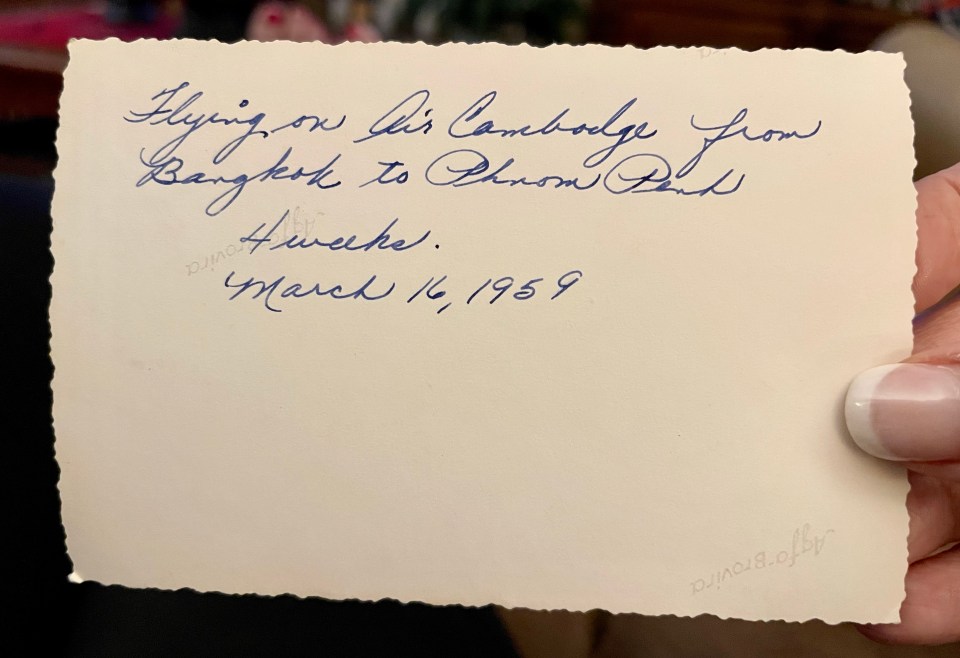 Flying on Air Cambodge from
Bangkok to Phnom Penh
4 weeks.
March 16, 1959
Agfa-Brovira
Agfa-Brovira